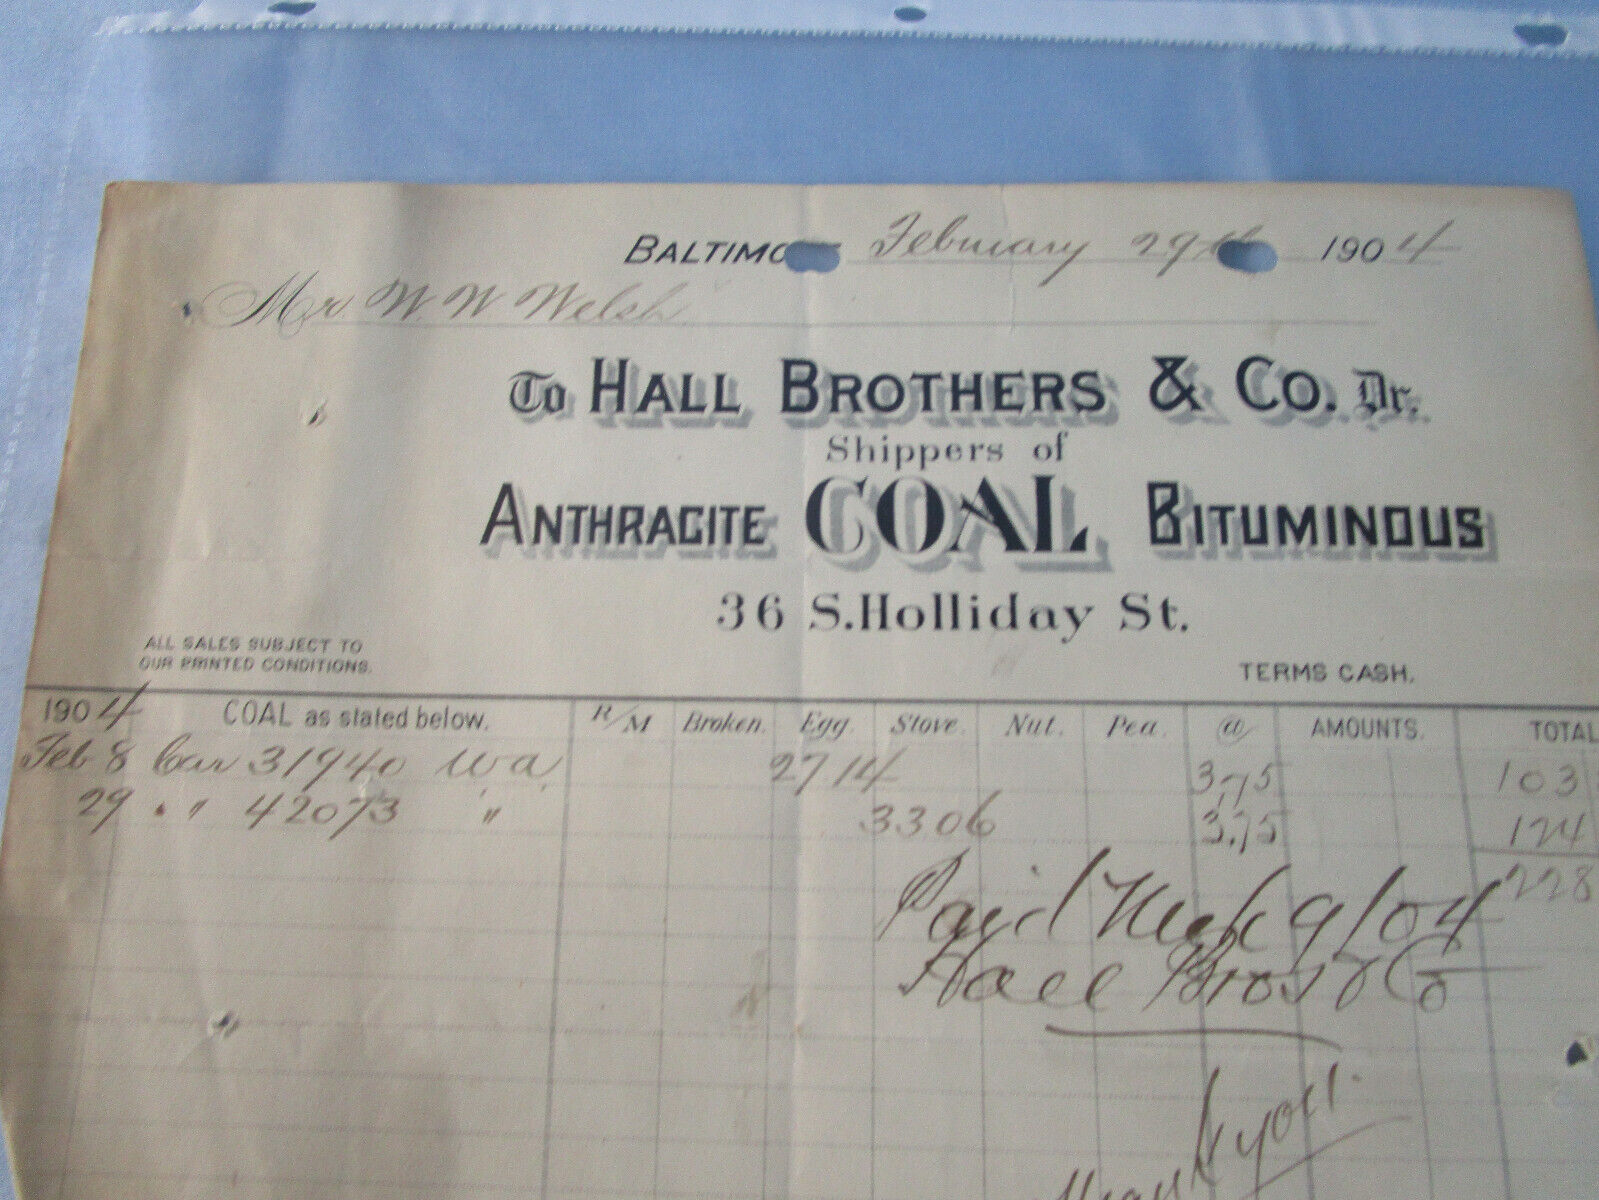 BALTIMO February 29th 1904
Mr W. W Welsh
To HALL BROTHERS & CO. Dr.
Shippers of
ANTHRACITE COAL BITUMINOUS
36 S. Holliday St.
ALL SALES SUBJECT TO
OUR PRINTED CONDITIONS.
TERMS CASH.
1904 COAL as stated below. R/M Broken. Egg. Stove. Nut. Pea. @ AMOUNTS. TOTAL
Feb 8 Car 31940 Wa 27 14 3.75 103
29 " " 42073 " 33 06 3.75 124
228
Paid Mch 9/04
Hall Bros & Co